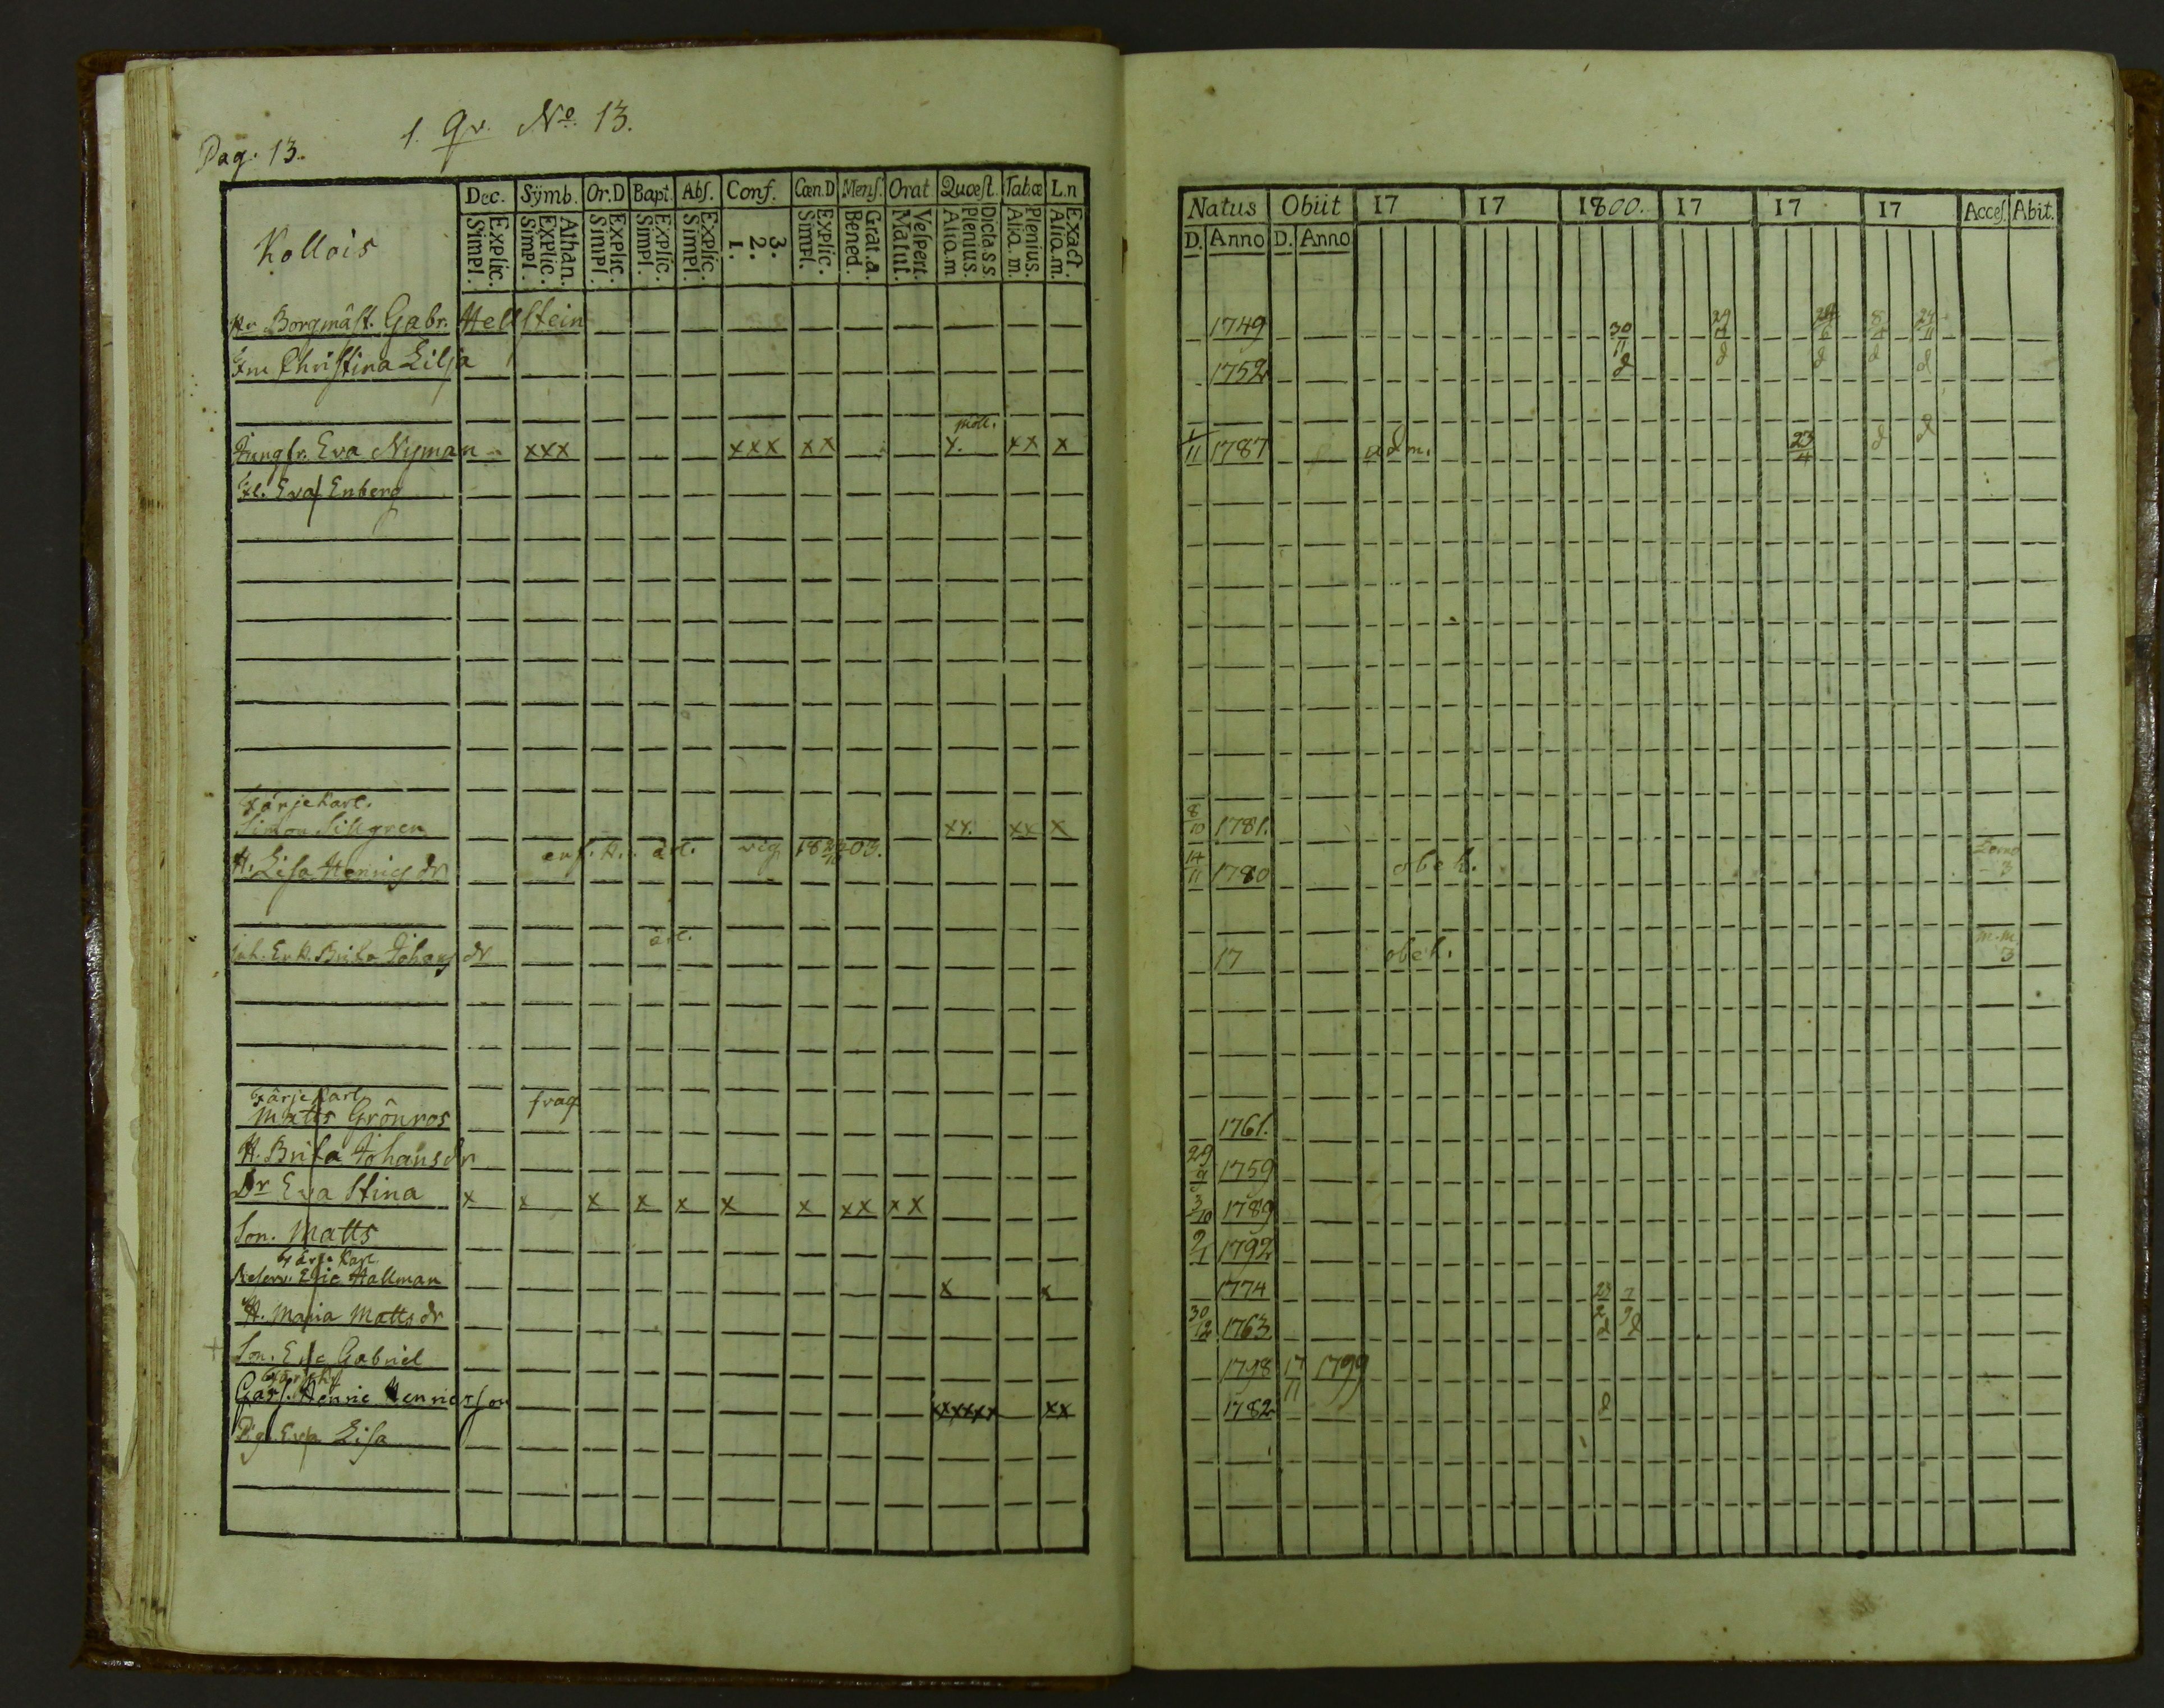 Pag. 13. 1. qv. No. 13.
Dec. Symb. Or.D Bapt. Abs. Conf. Cœn.D Mens. Orat Quæst. Tabæ L.n
Explic. Simpl. Athan. Explic. Simpl. Explic. Simpl. Explic. Simpl. Explic. Simpl. 3. 2. 1. Explic. Simpl. Grat.a. Bened. Vespert. Matut. Dicta s.s. Plenius. Alia.m Plenius. Alia.m. Exact. Alia.m.
Kollois
Hr Borgmäst. Gabr. Hellstein
Fru Christina Lilja
moll.
Jungfr. Eva Nyman xxx xxx xx x. xx x
Fl. Eva Enberg
Färjekarl.
Simon Sillgren xx. xx x
vig 1803.
H. Lisa Henrics dr
Enk. Brita Johans dr
Färjekarl
Matts Grönros svag
H. Brita Johans dr
Dr Eva Stina x x x x x x x xx xx
Son. Matts
Färjekarl
Reserv. Eric Hallman x x
H. Maria Matts dr
Son. Eric Gabriel
Henric Henricsson xxxxxx xx
Pig. Eva Lisa
Natus Obiit 17 17 1800. 17 17 17 Acces. Abit.
D. Anno D. Anno
1749 30/11 29/4 8/4 24/11
1752 d d d d d
1/11 1787 adm. 23/4 d d
8/10 1781.
14/11 1780 obek. 3
17 obek. 3
1761.
29/9 1759
3/10 1789
2/1 1792
1774 23/2
30/12 1763 d d
1798 17/11 1799
1782 d